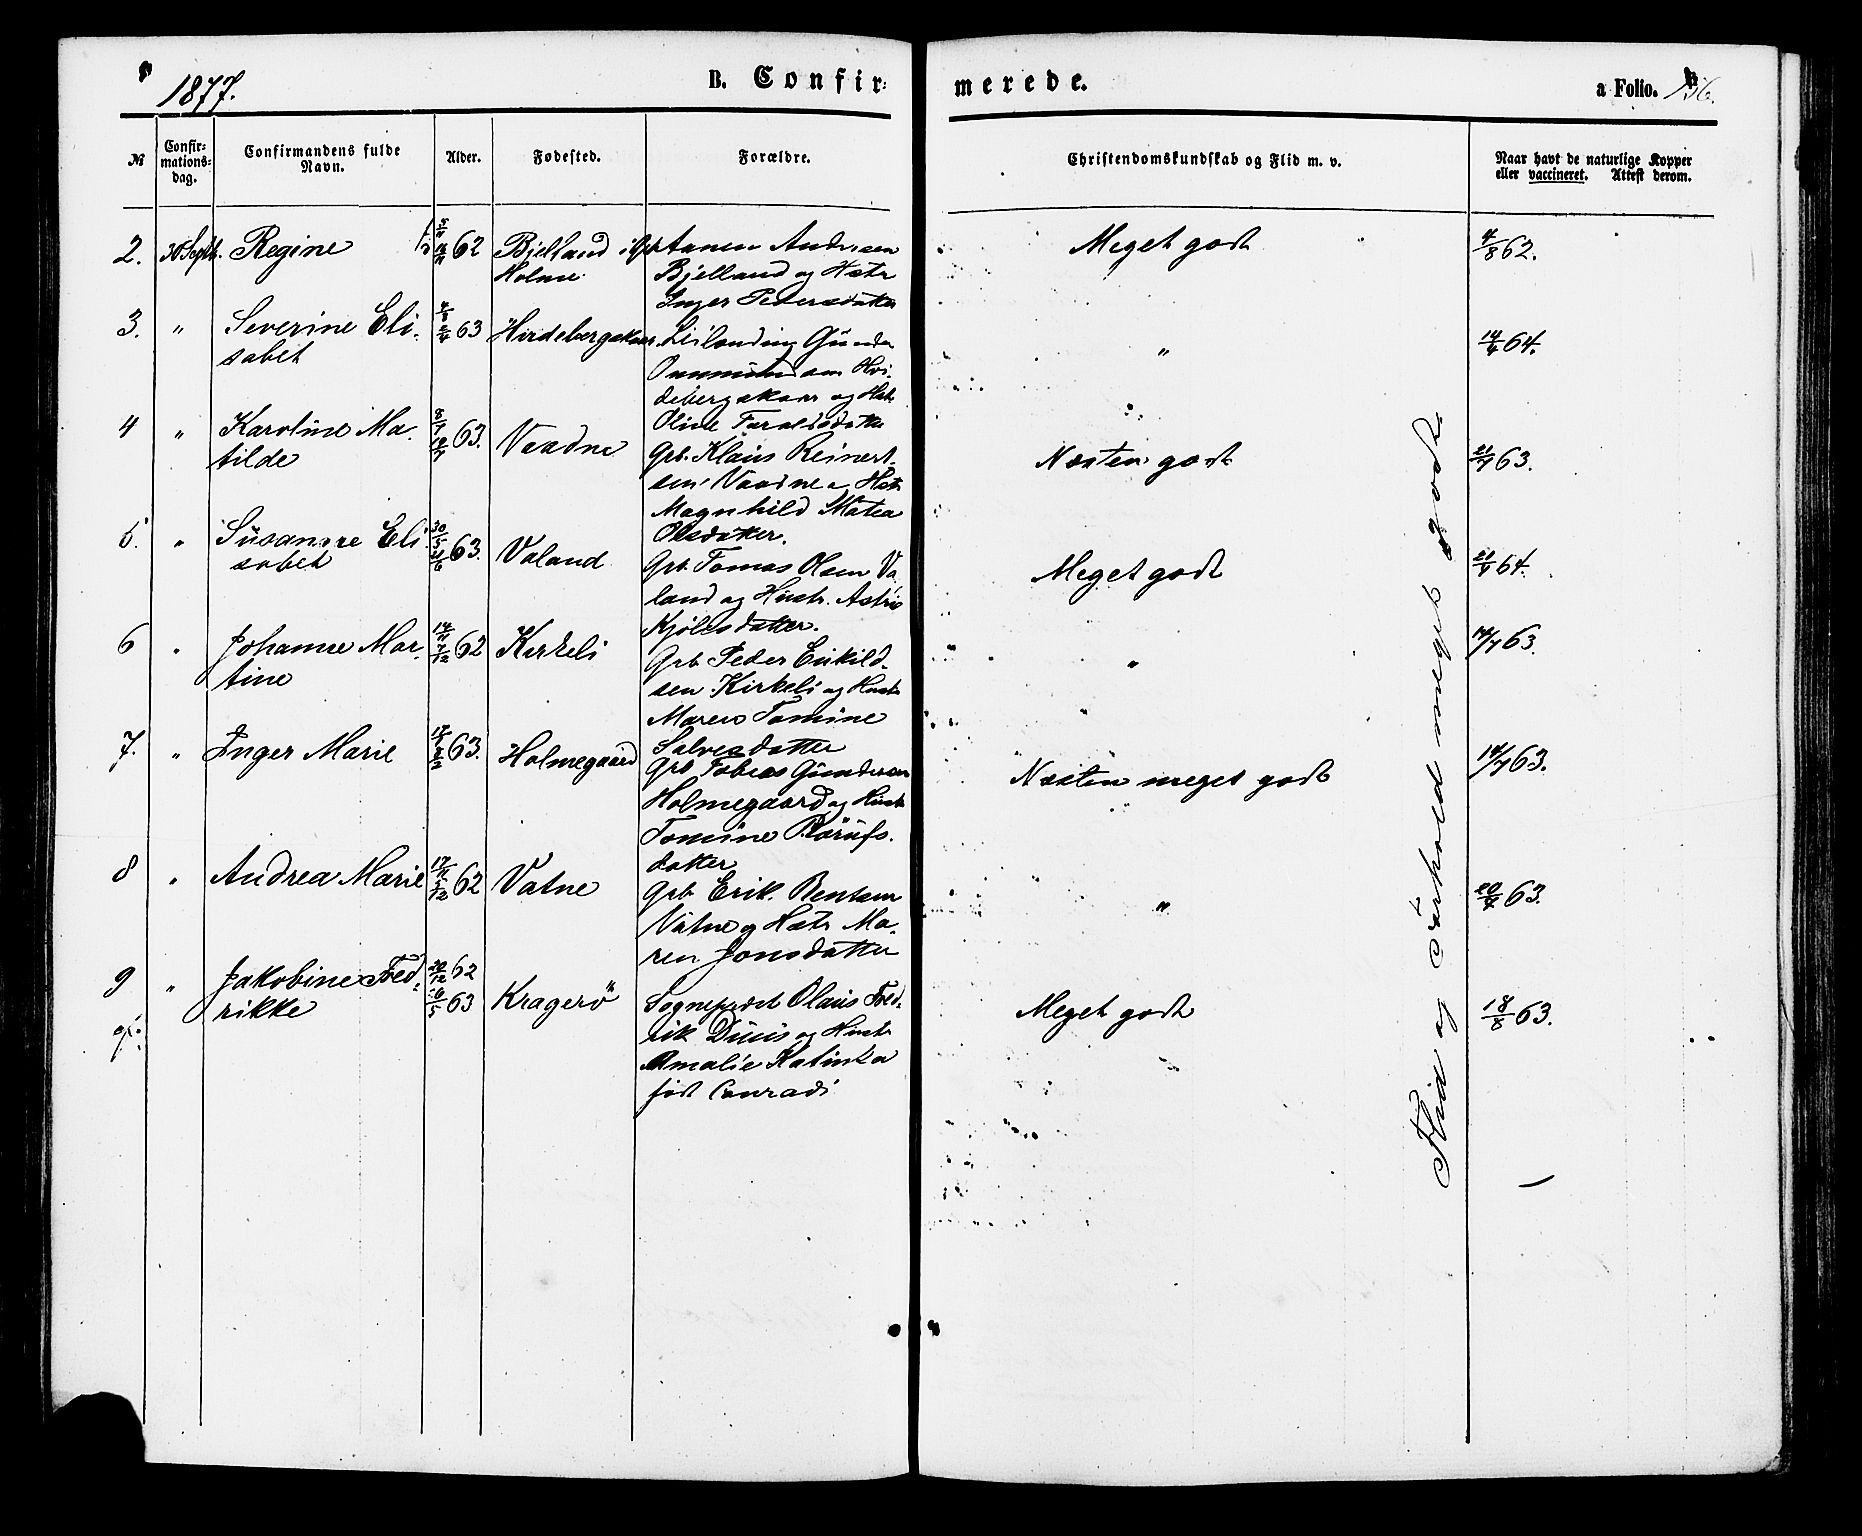 1877.
B. Confir=
merede.
a Folio. 136.
№
Confir=
mations=
dag.
Confirmandens fulde
Navn.
Alder.
Fødested.
Forældre.
Christendomskundskab og Flid m. v.
Naar havt de naturlige Kopper
eller vaccineret. Attest derom.
2. 30 Septb. Regine 62 Bjelland i
Holme
Aanen Andersen
Bjelland og Hstr
Inger Pedersdatter
Meget godt
4/8 62.
3. " Severine Eli-
sabet
63 Hirdebergskaar
Leilænding Gunder
Hvi-
debergskaar og Hstr
Oline Taraldsdatter
"
14/6 64.
4 " Karoline Ma-
tilde
63. Vaadne
Grb. Klaus Reinert-
sen Vaadne og Hstr
Magnhild Matea
Olsdatter.
Næsten godt
21/7 63.
5. " Susanne Eli-
sabet
30/5 21/6 63. Valand
Grb. Tomas Olsen Va-
land og Hustr. Astrid
Kjølesdatter.
Meget godt
64.
6 " Johanne Mar-
tine
62 Kirkeli
Grb Peder Eskild-
sen Kirkeli og Hustr
Maren Tomine
Salvesdatter
"
14/7 63.
7. " Inger Marie 63. Holmegaard
Grb Tobias Gundersen
Holmegaard og Hustr
Tomine Rørufs-
datter
Næsten meget godt
14/7 63.
8 " Andrea Marie 62 Vatne
Grb. Erik Bentsen
Vatne og Hstr Ma-
ren Jonsdatter
"
63.
9 " Jakobine Fred-
rikke
20/12 62
63 Kragerö
Sogneprest Olaus Fred-
rik Duus og Hustr
Amalie Katinka
født Conradi
Meget godt
18/8 63.
Flid og Forhold meget godt.